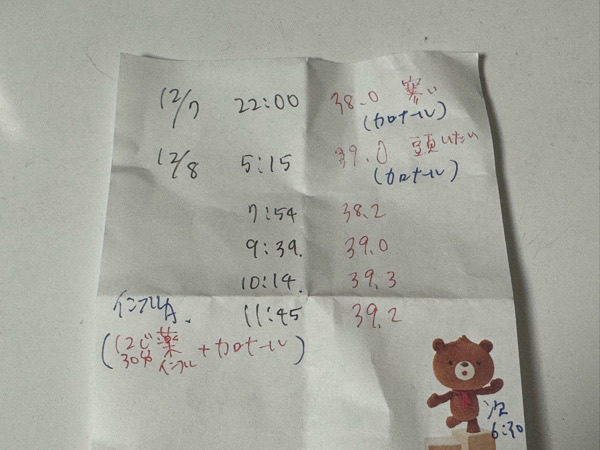 12/7 22:00 38.0 寒い
(カロナール)
12/8 5:15 39.0 頭いたい
(カロナール)
7:54 38.2
9:39. 39.0
10:14. 39.3
インフルA. 11:45 39.2
(12じ30分 薬インフル + カロナール)
次
6:30